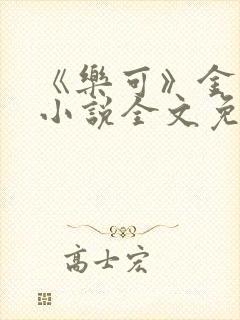 《樂可》金
小說全文免
高士宏